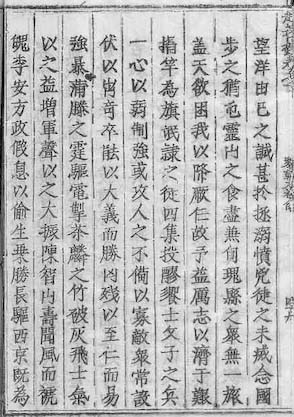 望洋由已之誠甚扵拯溺憤兇徒之未滅念國
步之猶屯靈山之食盡兼旬瑰縣之衆無一旅
盖天欲困我以降厥任故予益厲志以濟于艱
揭竿為旗氓隸之徒四集投醪饗士父子之兵
一心以弱制強或攻人之不備以寡敵衆常設
伏以出奇卒能以大義而勝凶残以至仁而易
強暴蒲藤之霆驅電掣茶麟之竹破灰飛士氣
以之益增軍聲以之大振陳智山壽聞風而褫
魄李安方政假息以偷生乗勝長驅西京既為